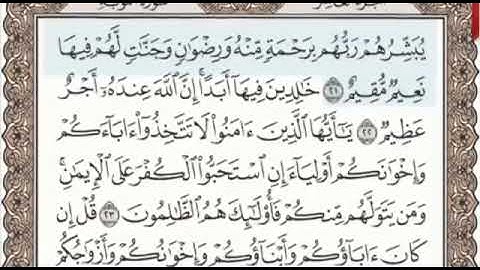 يُبَشِّرُهُمْ رَبُّهُم بِرَحْمَةٍ مِّنْهُ وَرِضْوَٰنٍ وَجَنَّٰتٍ لَّهُمْ فِيهَا
نَعِيمٌ مُّقِيمٌ ٢١ خَٰلِدِينَ فِيهَآ أَبَدًا ۚ إِنَّ ٱللَّهَ عِندَهُۥٓ أَجْرٌ
عَظِيمٌ ٢٢ يَٰٓأَيُّهَا ٱلَّذِينَ ءَامَنُوا۟ لَا تَتَّخِذُوٓا۟ ءَابَآءَكُمْ
وَإِخْوَٰنَكُمْ أَوْلِيَآءَ إِنِ ٱسْتَحَبُّوا۟ ٱلْكُفْرَ عَلَى ٱلْإِيمَٰنِ ۚ
وَمَن يَتَوَلَّهُم مِّنكُمْ فَأُو۟لَٰٓئِكَ هُمُ ٱلظَّٰلِمُونَ ٢٣ قُلْ إِن
كَانَ ءَابَآؤُكُمْ وَأَبْنَآؤُكُمْ وَإِخْوَٰنُكُمْ وَأَزْوَٰجُكُمْ